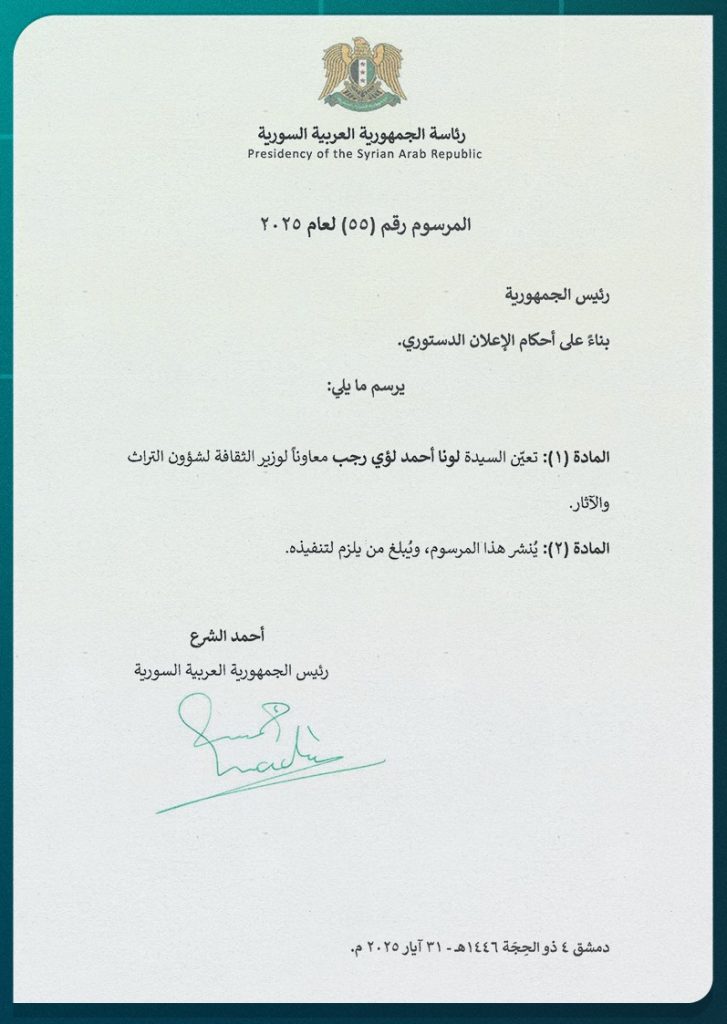 رئاسة الجمهورية العربية السورية
Presidency of the Syrian Arab Republic
المرسوم رقم (٥٥) لعام ٢٠٢٥
رئيس الجمهورية
بناءً على أحكام الإعلان الدستوري.
يرسم ما يلي:
المادة (١): تعيّن السيدة لونا أحمد لؤي رجب معاوناً لوزير الثقافة لشؤون التراث
والآثار.
المادة (٢): يُنشر هذا المرسوم، ويُبلغ من يلزم لتنفيذه.
أحمد الشرع
رئيس الجمهورية العربية السورية
دمشق ٤ ذو الحِجَة ١٤٤٦هـ - ٣١ آيار ٢٠٢٥ م.